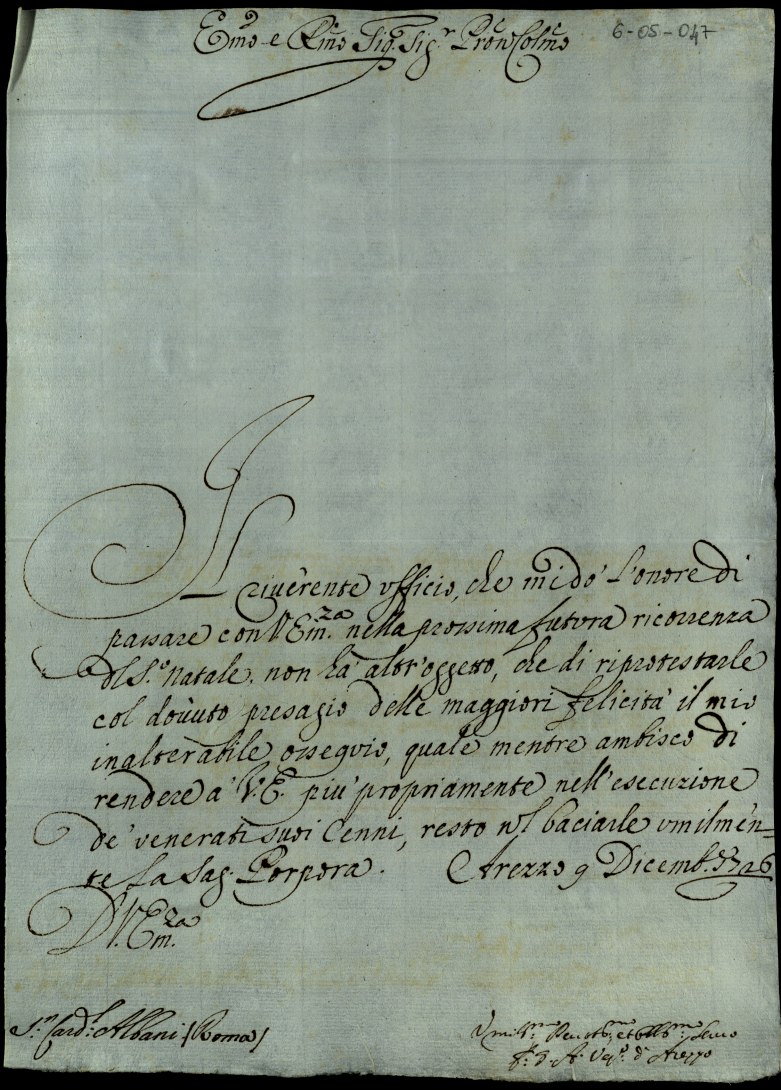 Em̃o e Rm̃o Sig. Sig.r Pron̄ Colm̃o
6-05-047
Il riuerente vfficio, che mi do' l'onore di
passare con V. Em.za nella prossima futura ricorrenza
del S.o Natale. non ha' altr'oggetto, che di riprotestarle
col douuto presagio delle maggiori felicita' il mio
inalterabile ossequio, quale mentre ambisco di
rendere a' V. E. piu' propriamente nell'esecuzione
de' venerati suoi Cenni, resto nel baciarle vmilmen=
te la Sag. Porpora. Arezzo 9 Dicemb. 1726
D V. Em.za
S.r Card.l Albani (Roma)
Vmil.mo Deu.mo et Obb.mo Seruo
V. d' Arezzo